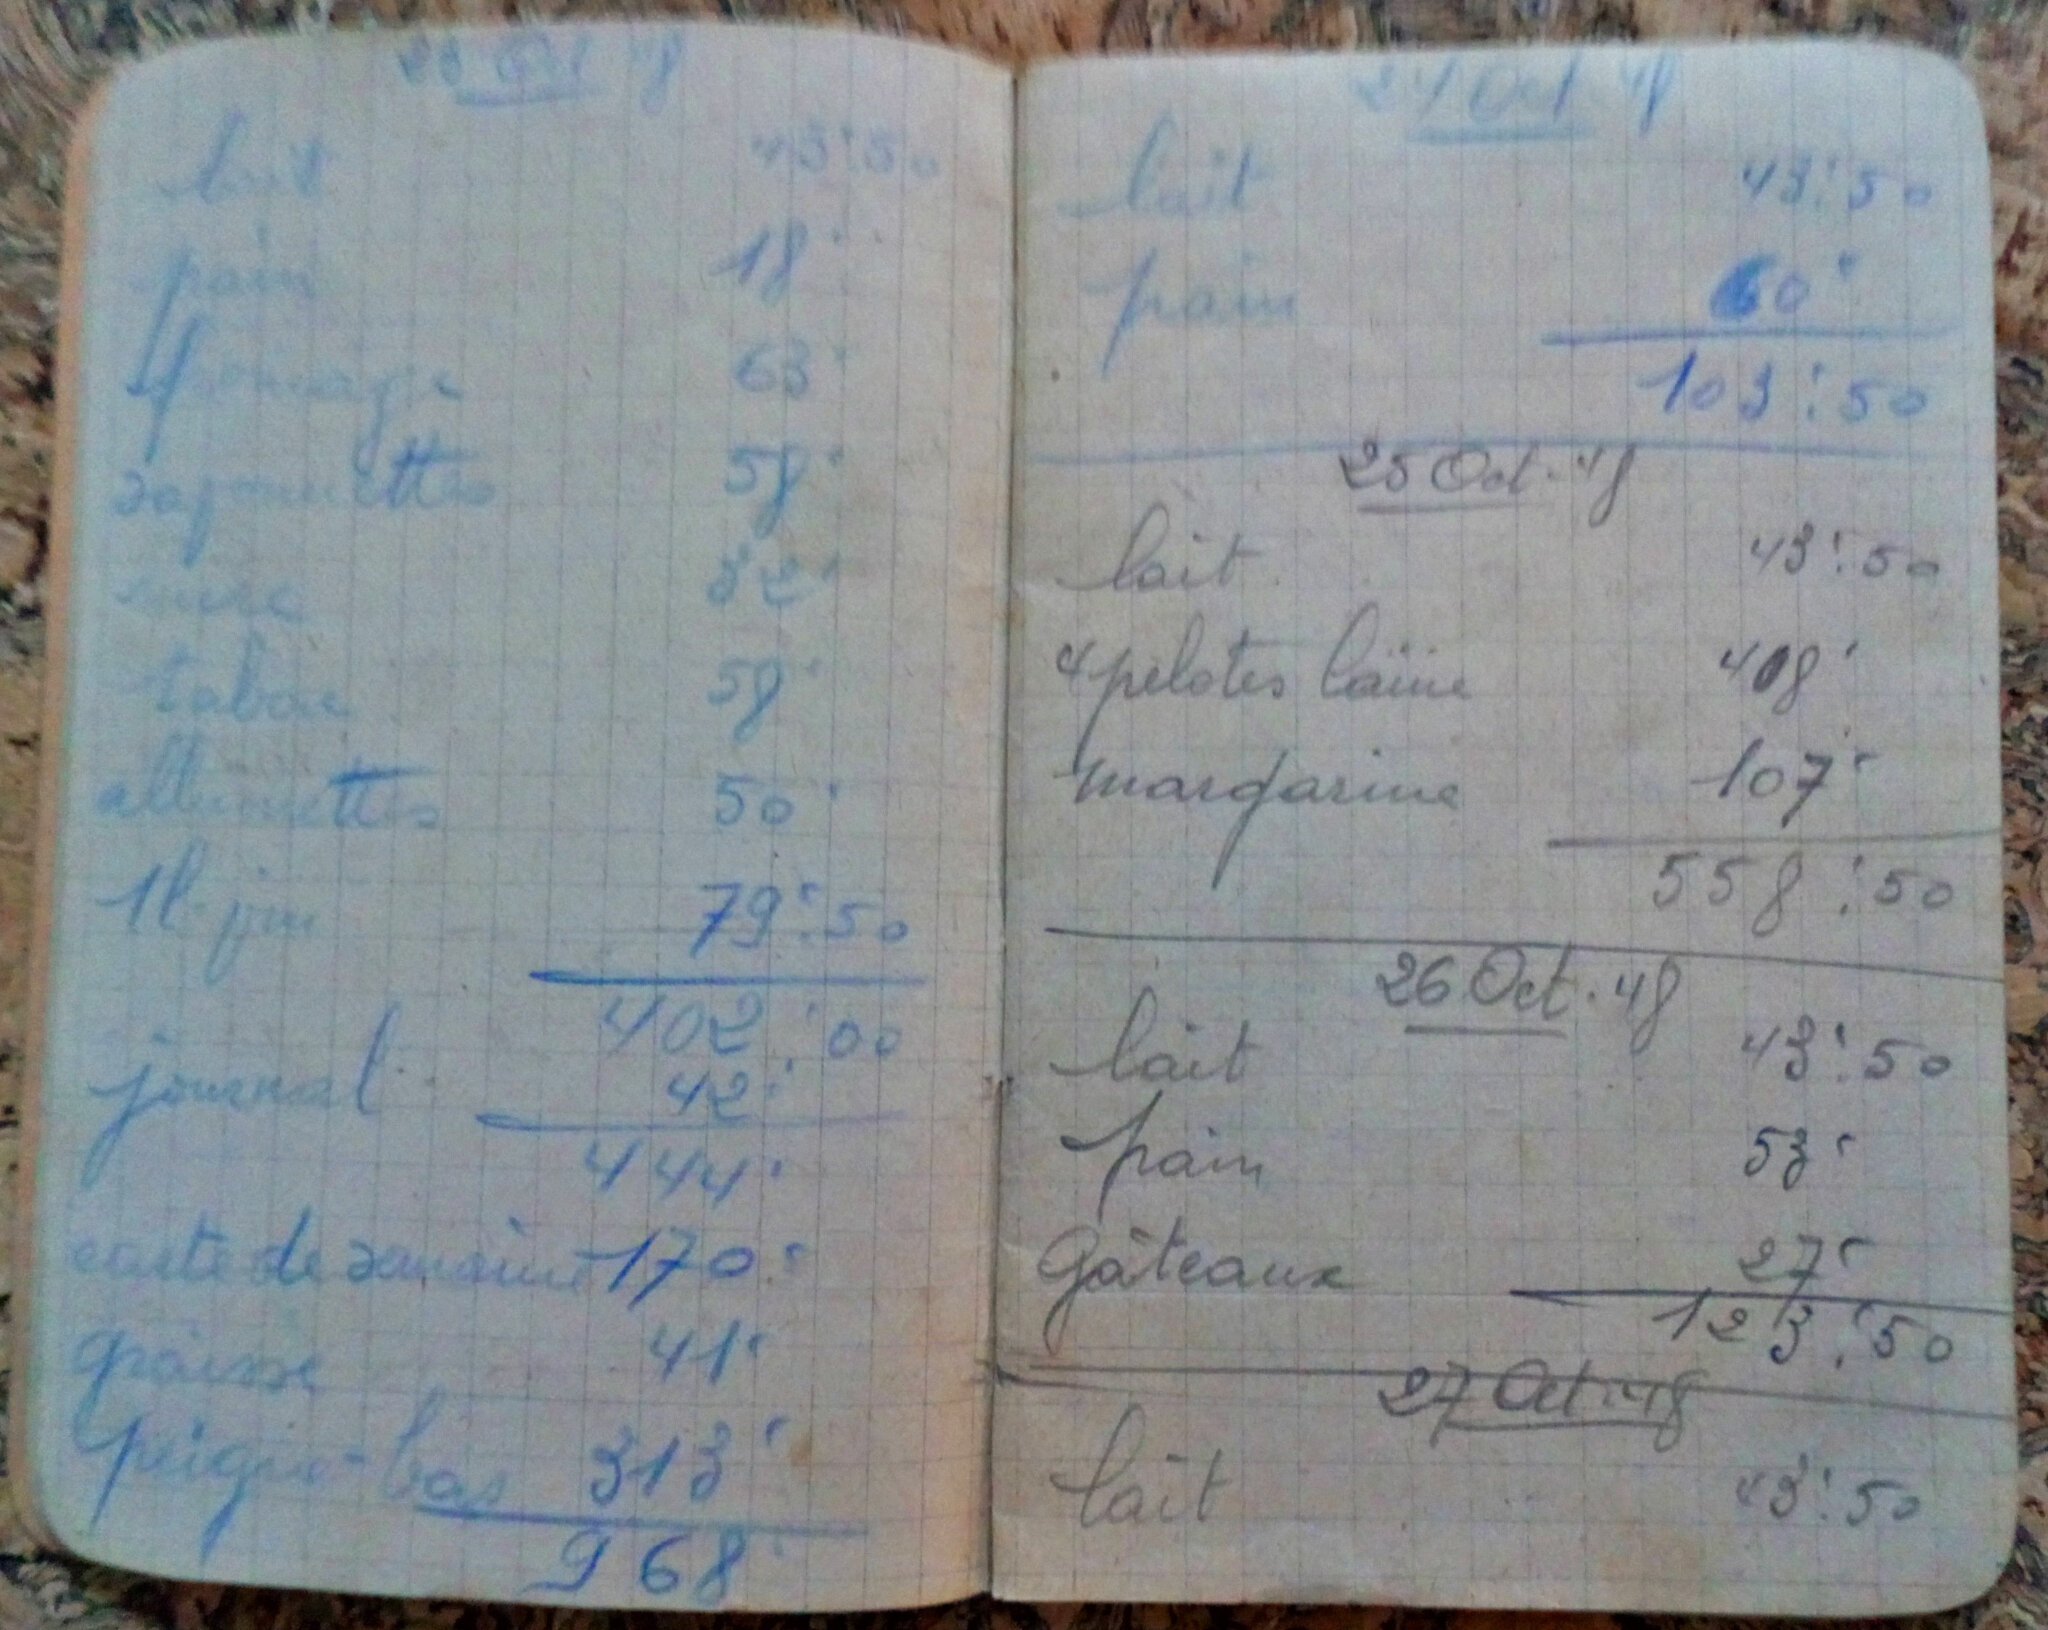 23 Oct 48
lait 43:50
pain 18'
fromage 63'
saponnettes 58'
32'
tabac 58'
allumettes 50'
1l 79:50
402:00
journal 42'
444'
carte de semaine 170'
graisse 41'
peigne-bas 313'
968'
24 Oct. 48
lait 43:50
pain 60'
103:50
25 Oct. 48
lait 43:50
4 pelotes laine 408'
margarine 107'
558:50
26 Oct. 48
lait 43:50
pain 53'
Gâteaux 27'
123:50
27 Oct. 48
lait 43:50